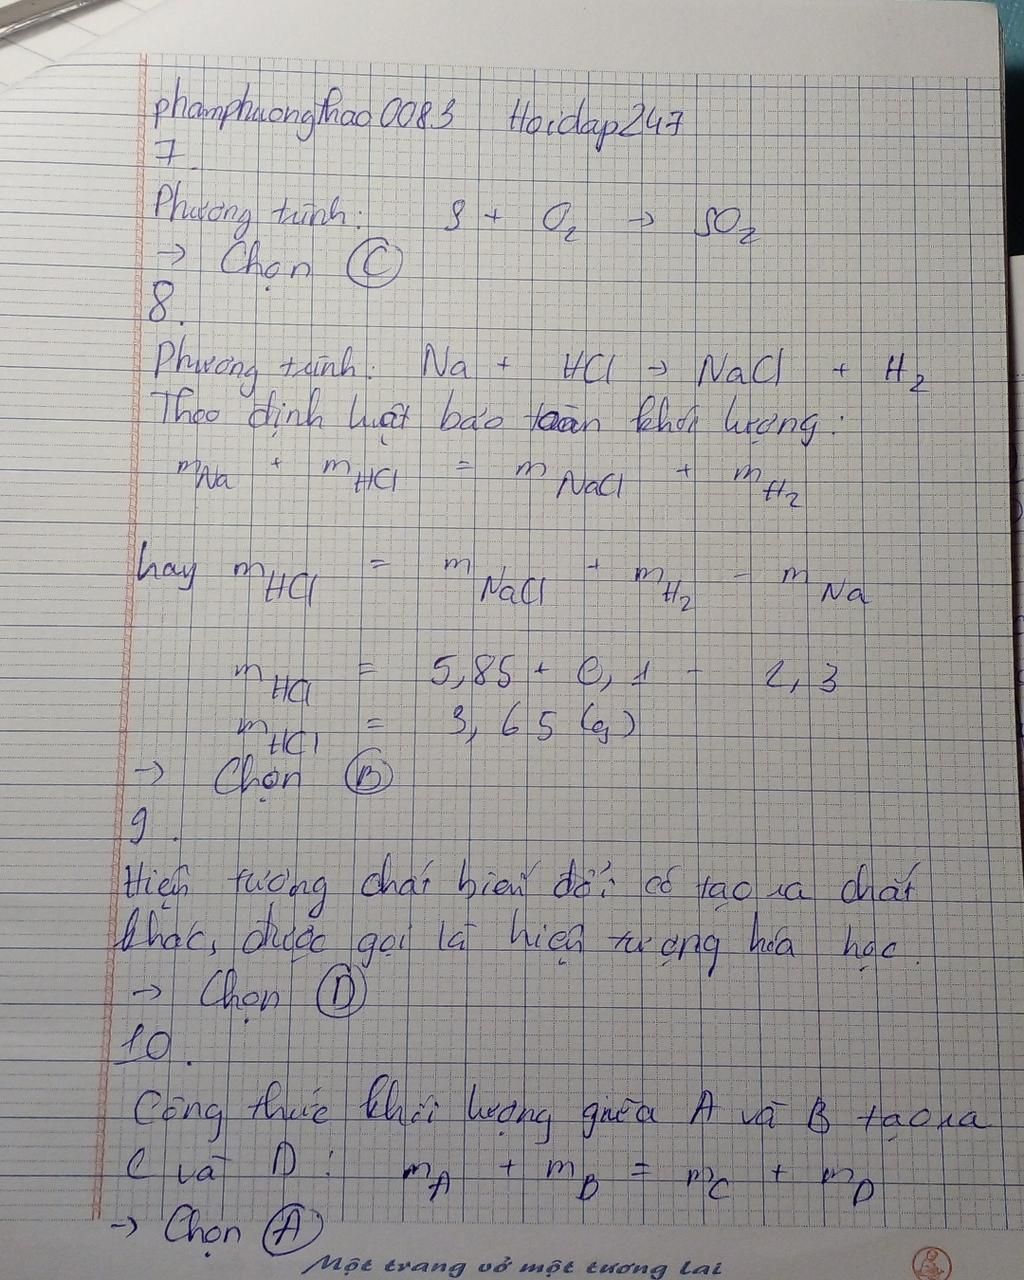 phamphuongthao0083 Hoidap247
7.
Phương trình: S + O₂ → SO₂
→ Chọn C
8.
Phương trình: Na + HCl → NaCl + H₂
Theo định luật bảo toàn khối lượng:
m Na + m HCl = m NaCl + m H₂
hay m HCl = m NaCl + m H₂ - m Na
m HCl = 5,85 + 0,1 - 2,3
m HCl = 3,65 (g)
→ Chọn B
9.
Hiện tượng chất biến đổi có tạo ra chất
khác, được gọi là hiện tượng hóa học.
→ Chọn D
10.
Công thức khối lượng giữa A và B tạo ra
C và D: m A + m B = m C + m D
→ Chọn A
Một trang vở một tương lai